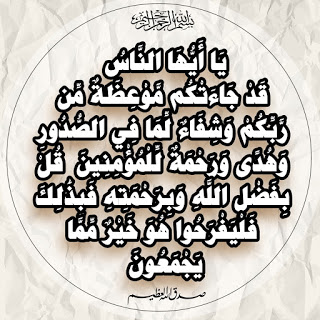 بسم الله الرحمن الرحيم
يَا أَيُّهَا النَّاسُ
قَدْ جَاءَتْكُم مَوْعِظَةٌ مِّن
رَّبِّكُمْ وَشِفَاءٌ لِّمَا فِي الصُّدُورِ
وَهُدًى وَرَحْمَةٌ لِّلْمُؤْمِنِينَ قُلْ
بِفَضْلِ اللَّهِ وَبِرَحْمَتِهِ فَبِذَٰلِكَ
فَلْيَفْرَحُوا هُوَ خَيْرٌ مِّمَّا
يَجْمَعُونَ
صدق الله العظيم